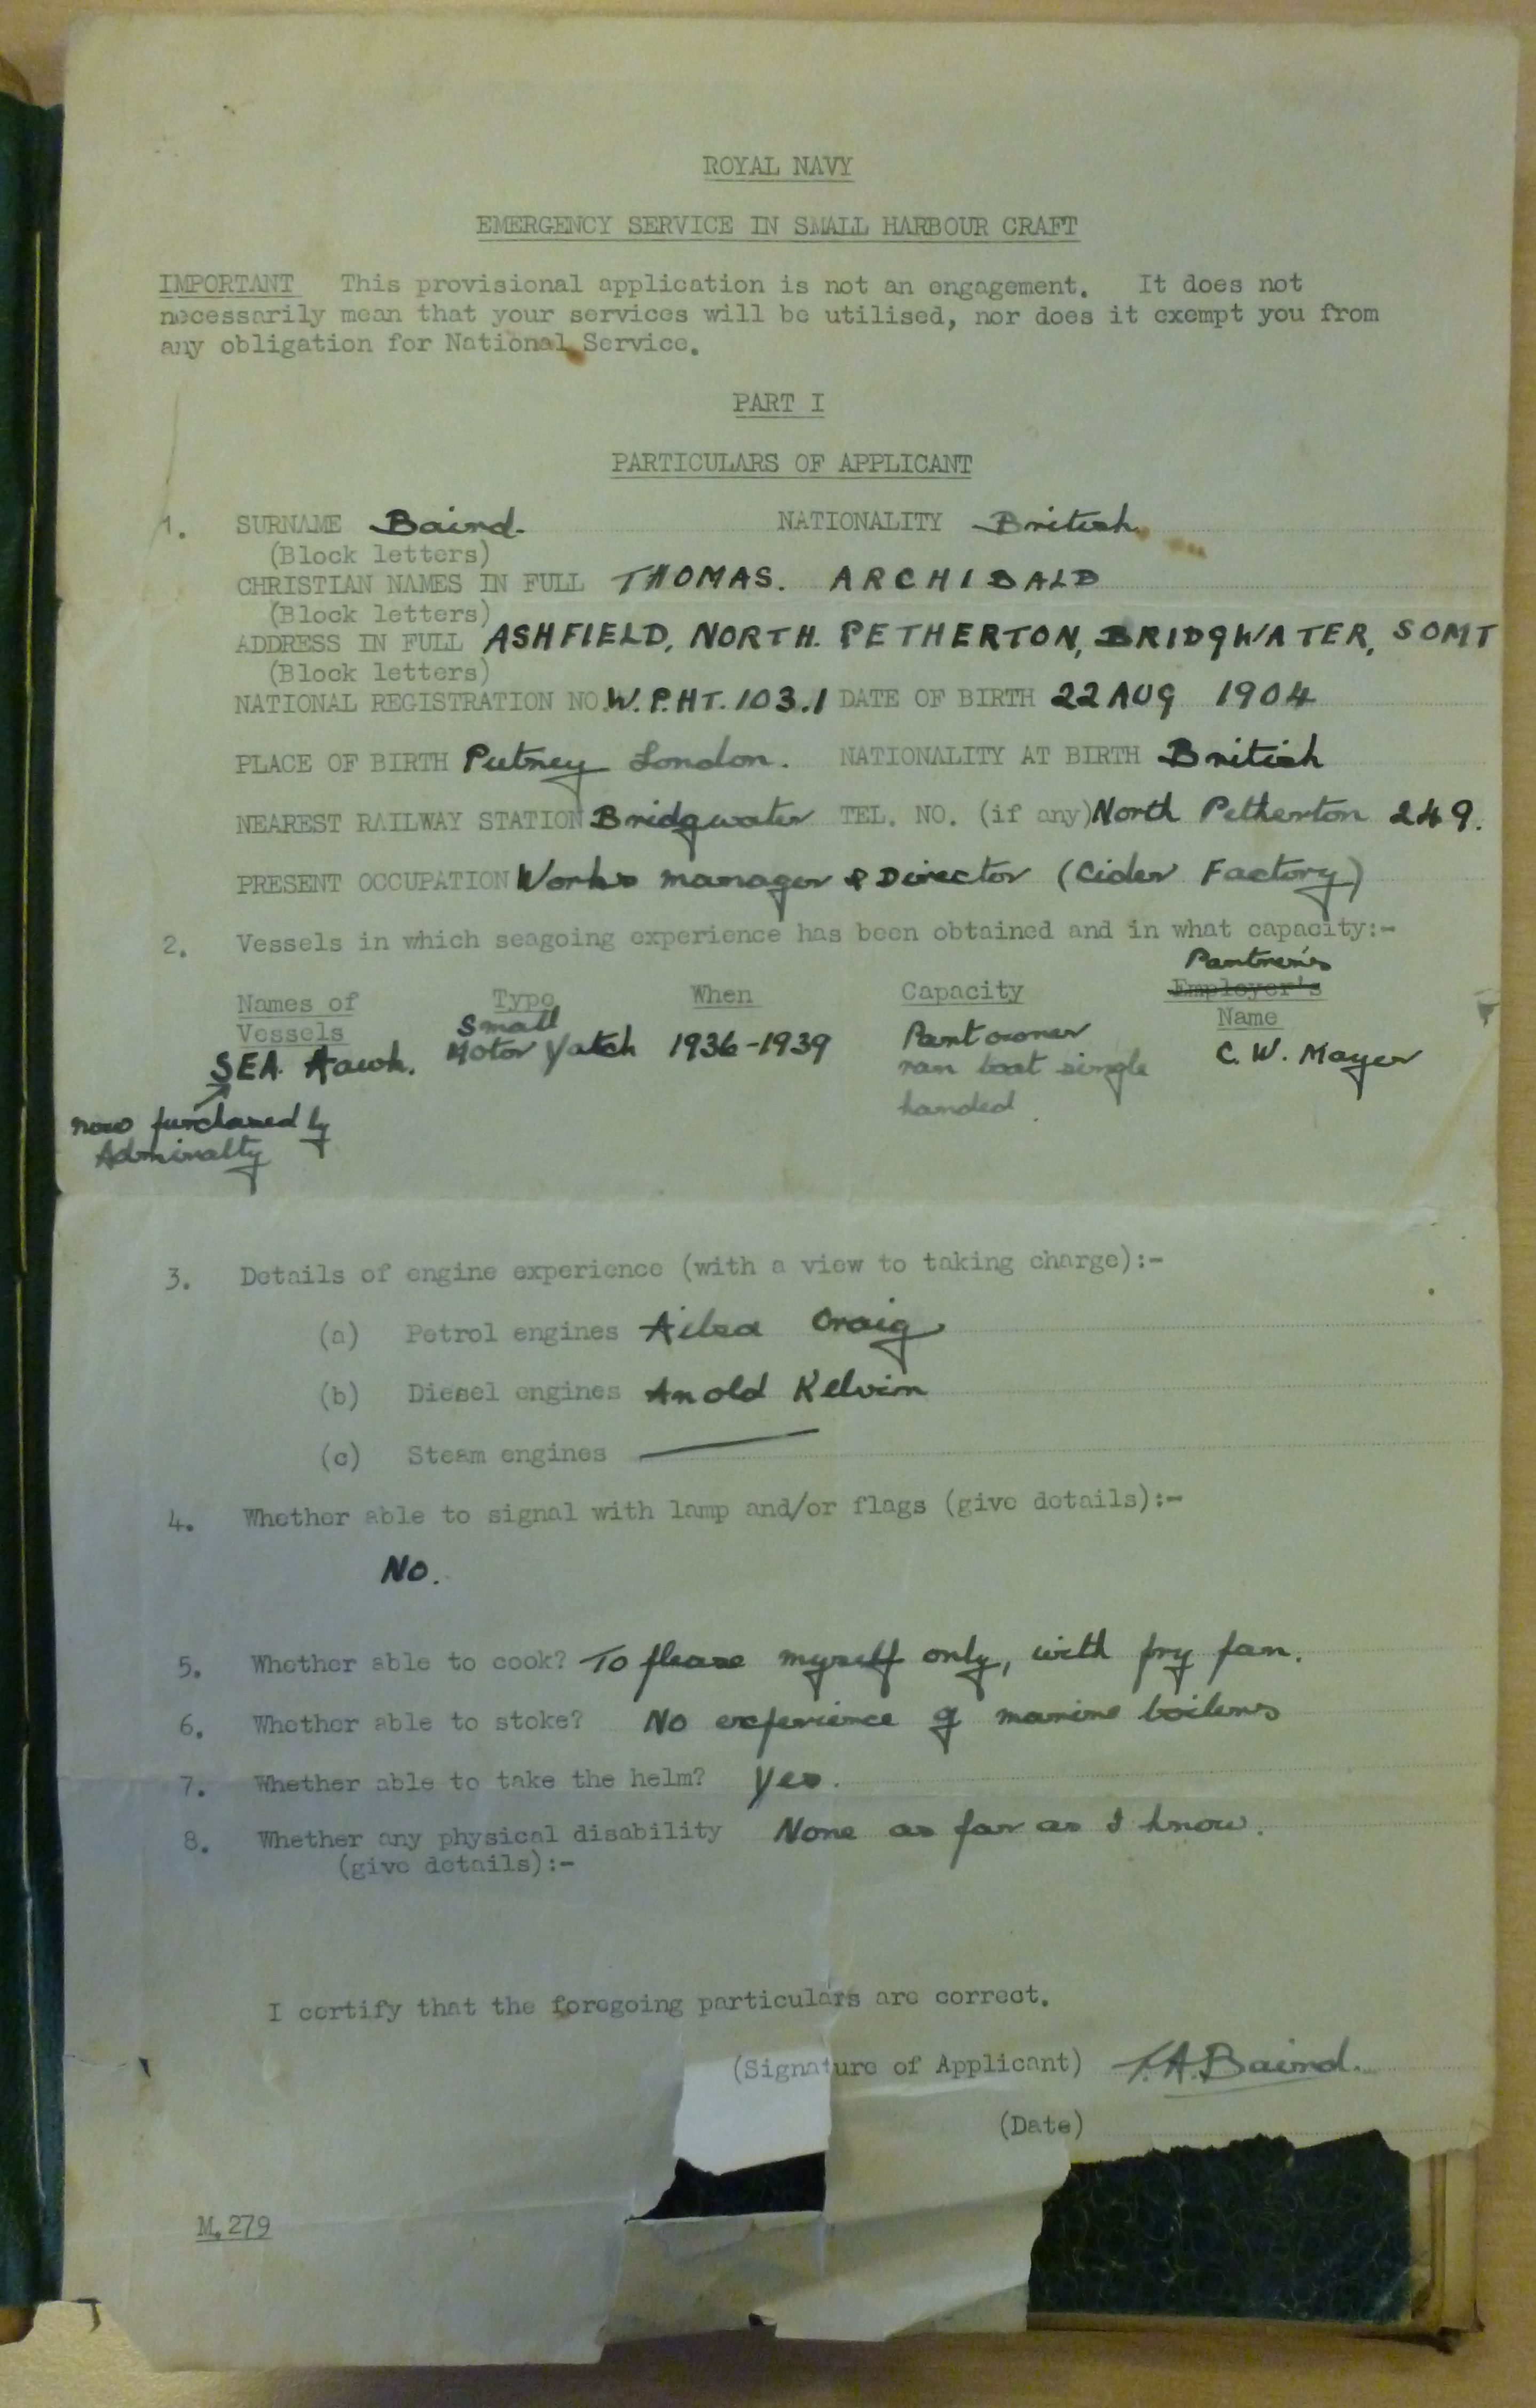 ROYAL NAVY
EMERGENCY SERVICE IN SMALL HARBOUR CRAFT
IMPORTANT This provisional application is not an engagement. It does not
necessarily mean that your services will be utilised, nor does it exempt you from
any obligation for National Service.
PART I
PARTICULARS OF APPLICANT
1. SURNAME Baird. NATIONALITY British
(Block letters)
CHRISTIAN NAMES IN FULL THOMAS. ARCHIBALD
(Block letters)
ADDRESS IN FULL ASHFIELD, NORTH. PETHERTON, BRIDGWATER, SOMT
(Block letters)
NATIONAL REGISTRATION NO. W.P.HT. 103.1 DATE OF BIRTH 22 AUG 1904
PLACE OF BIRTH Putney London. NATIONALITY AT BIRTH British
NEAREST RAILWAY STATION Bridgwater TEL. NO. (if any) North Petherton 249.
PRESENT OCCUPATION Works manager & Director (Cider Factory)
2. Vessels in which seagoing experience has been obtained and in what capacity:-
Partner's
Names of Type When Capacity Employer's
Vessels Small Name
SEA Hawk. Motor Yatch 1936-1939 Part owner C. W. Mayer
ran boat single
handed
now purchased by
Admiralty
3. Details of engine experience (with a view to taking charge):-
(a) Petrol engines Ailsa Craig
(b) Diesel engines An old Kelvin
(c) Steam engines
4. Whether able to signal with lamp and/or flags (give details):-
No.
5. Whether able to cook? To please myself only, with fry pan.
6. Whether able to stoke? No experience of marine boilers
7. Whether able to take the helm? Yes.
8. Whether any physical disability None as far as I know.
(give details):-
I certify that the foregoing particulars are correct.
(Signature of Applicant) T.A. Baird.
(Date)
M.279